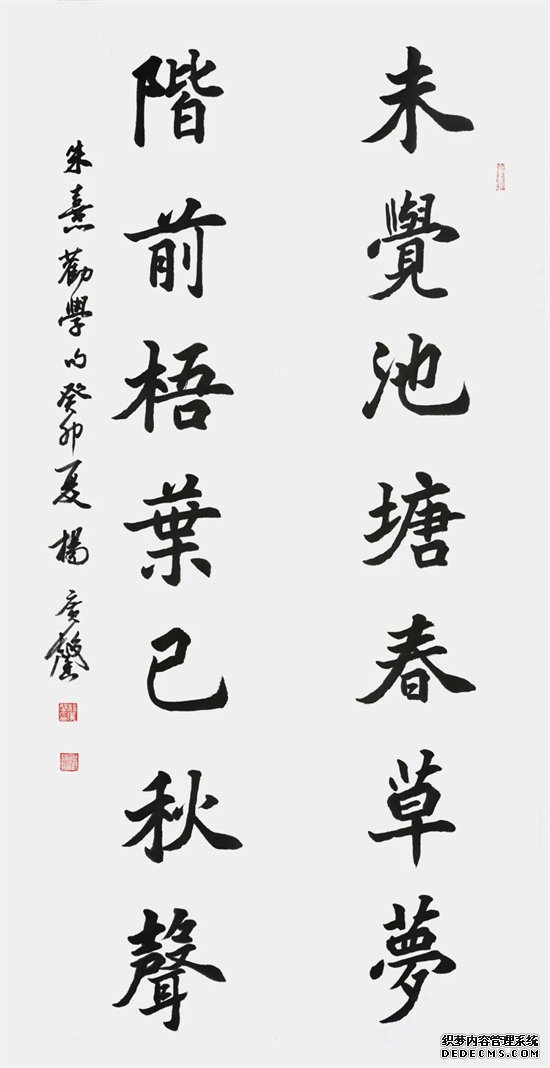 未覺池塘春草夢
階前梧葉已秋聲
朱熹勸學句癸卯夏楊廣馨
织梦内容管理系统
DEDECMS.COM